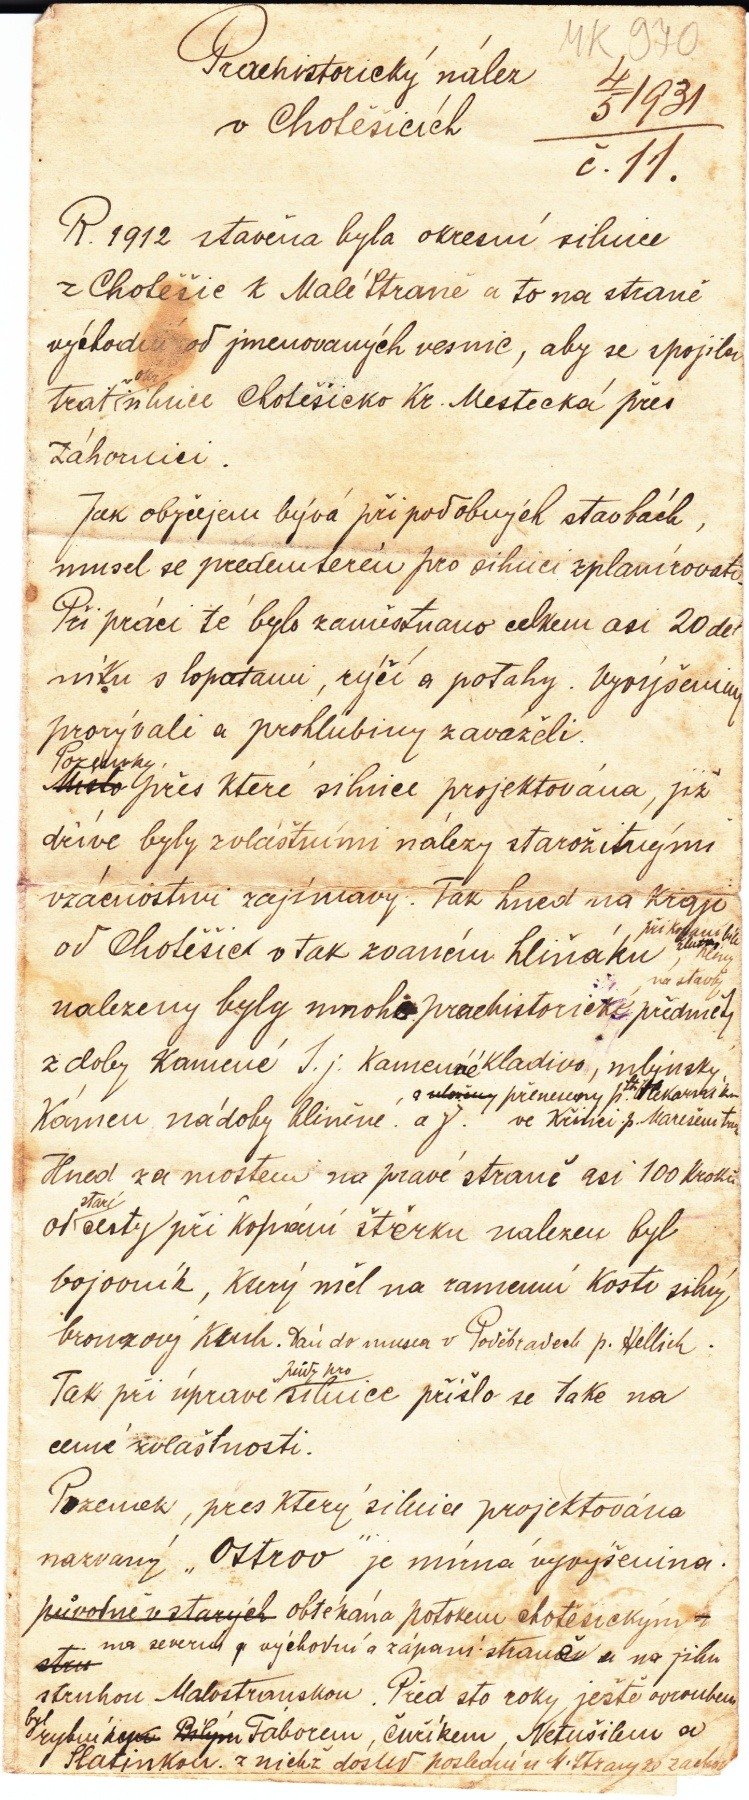 MK 970
Praehistorický nález
v Chotěšicích
4/5 1931
č. 11.
R. 1912 stavěna byla okresní silnice
z Chotěšic k Malé Straně a to na straně
východní od jmenovaných vesnic, aby se spojila
trať silnice Chotěšicko Kr. Mestecká přes
Záhornici.
Jak obyčejem bývá při podobných stavbách,
musel se předem terén pro silnici zplanírovati.
Při práci té bylo zaměstnáno celkem asi 20 děl
níku s lopatami, rýči a potahy. Vyvýšeniny
prorývali a prohlubiny zaváželi.
Pozemky
Místo přes které silnice projektována, již
dříve byly zvláštními nálezy starožitnými
vzácnostmi zajímavy. Tak hned na kraji
od Chotěšic v tak zvaném hliňáku, při kopání hlíny
na stavby
nalezeny byly mnohé praehistorické předměty
z doby kamené t. j. kamenné kladivo, mlýnský
kámen nádoby hliněné a j. přeneseny ve Křinci p. Marešem
Hned za mostem na pravé straně asi 100 kroků
od staré cesty při kopání štěrku nalezen byl
bojovník, který měl na ramenní kosti silný
bronzový kruh. Dán do musea v Poděbradech p. Hellich.
Tak při úpravě půdy pro silnice přišlo se také na
cené zvláštnosti.
Pozemek, přes který silnice projektována
nazvaný „Ostrov" je mírná vyvýšenina.
původně v starých obtékána potokem chotěšickým
na severní, východní a západní straně a na jihu
struhou Malostranskou. Před sto roky ještě ovrouben
byl rybníkem Bílým Táborem, Čuříkem, Netušilem a
Slatinkou. z nichž dosud poslední u M. Strany se zachov